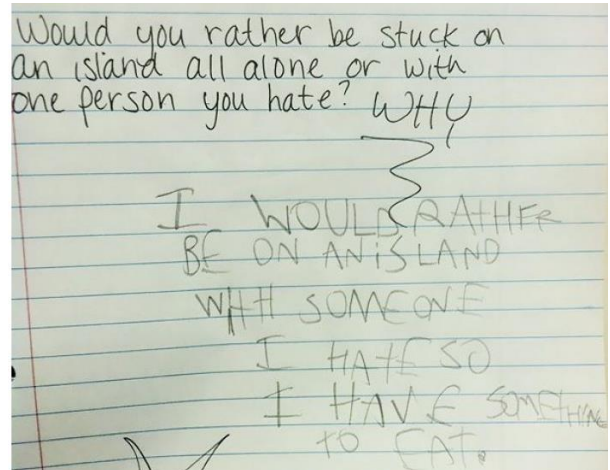 Would you rather be stuck on
an island all alone or with
one person you hate? WHY
I WOULD RATHER
BE ON AN iSLAND
WITH SOMEONE
I HATE SO
I HAVE SOMETHING
TO EAT.